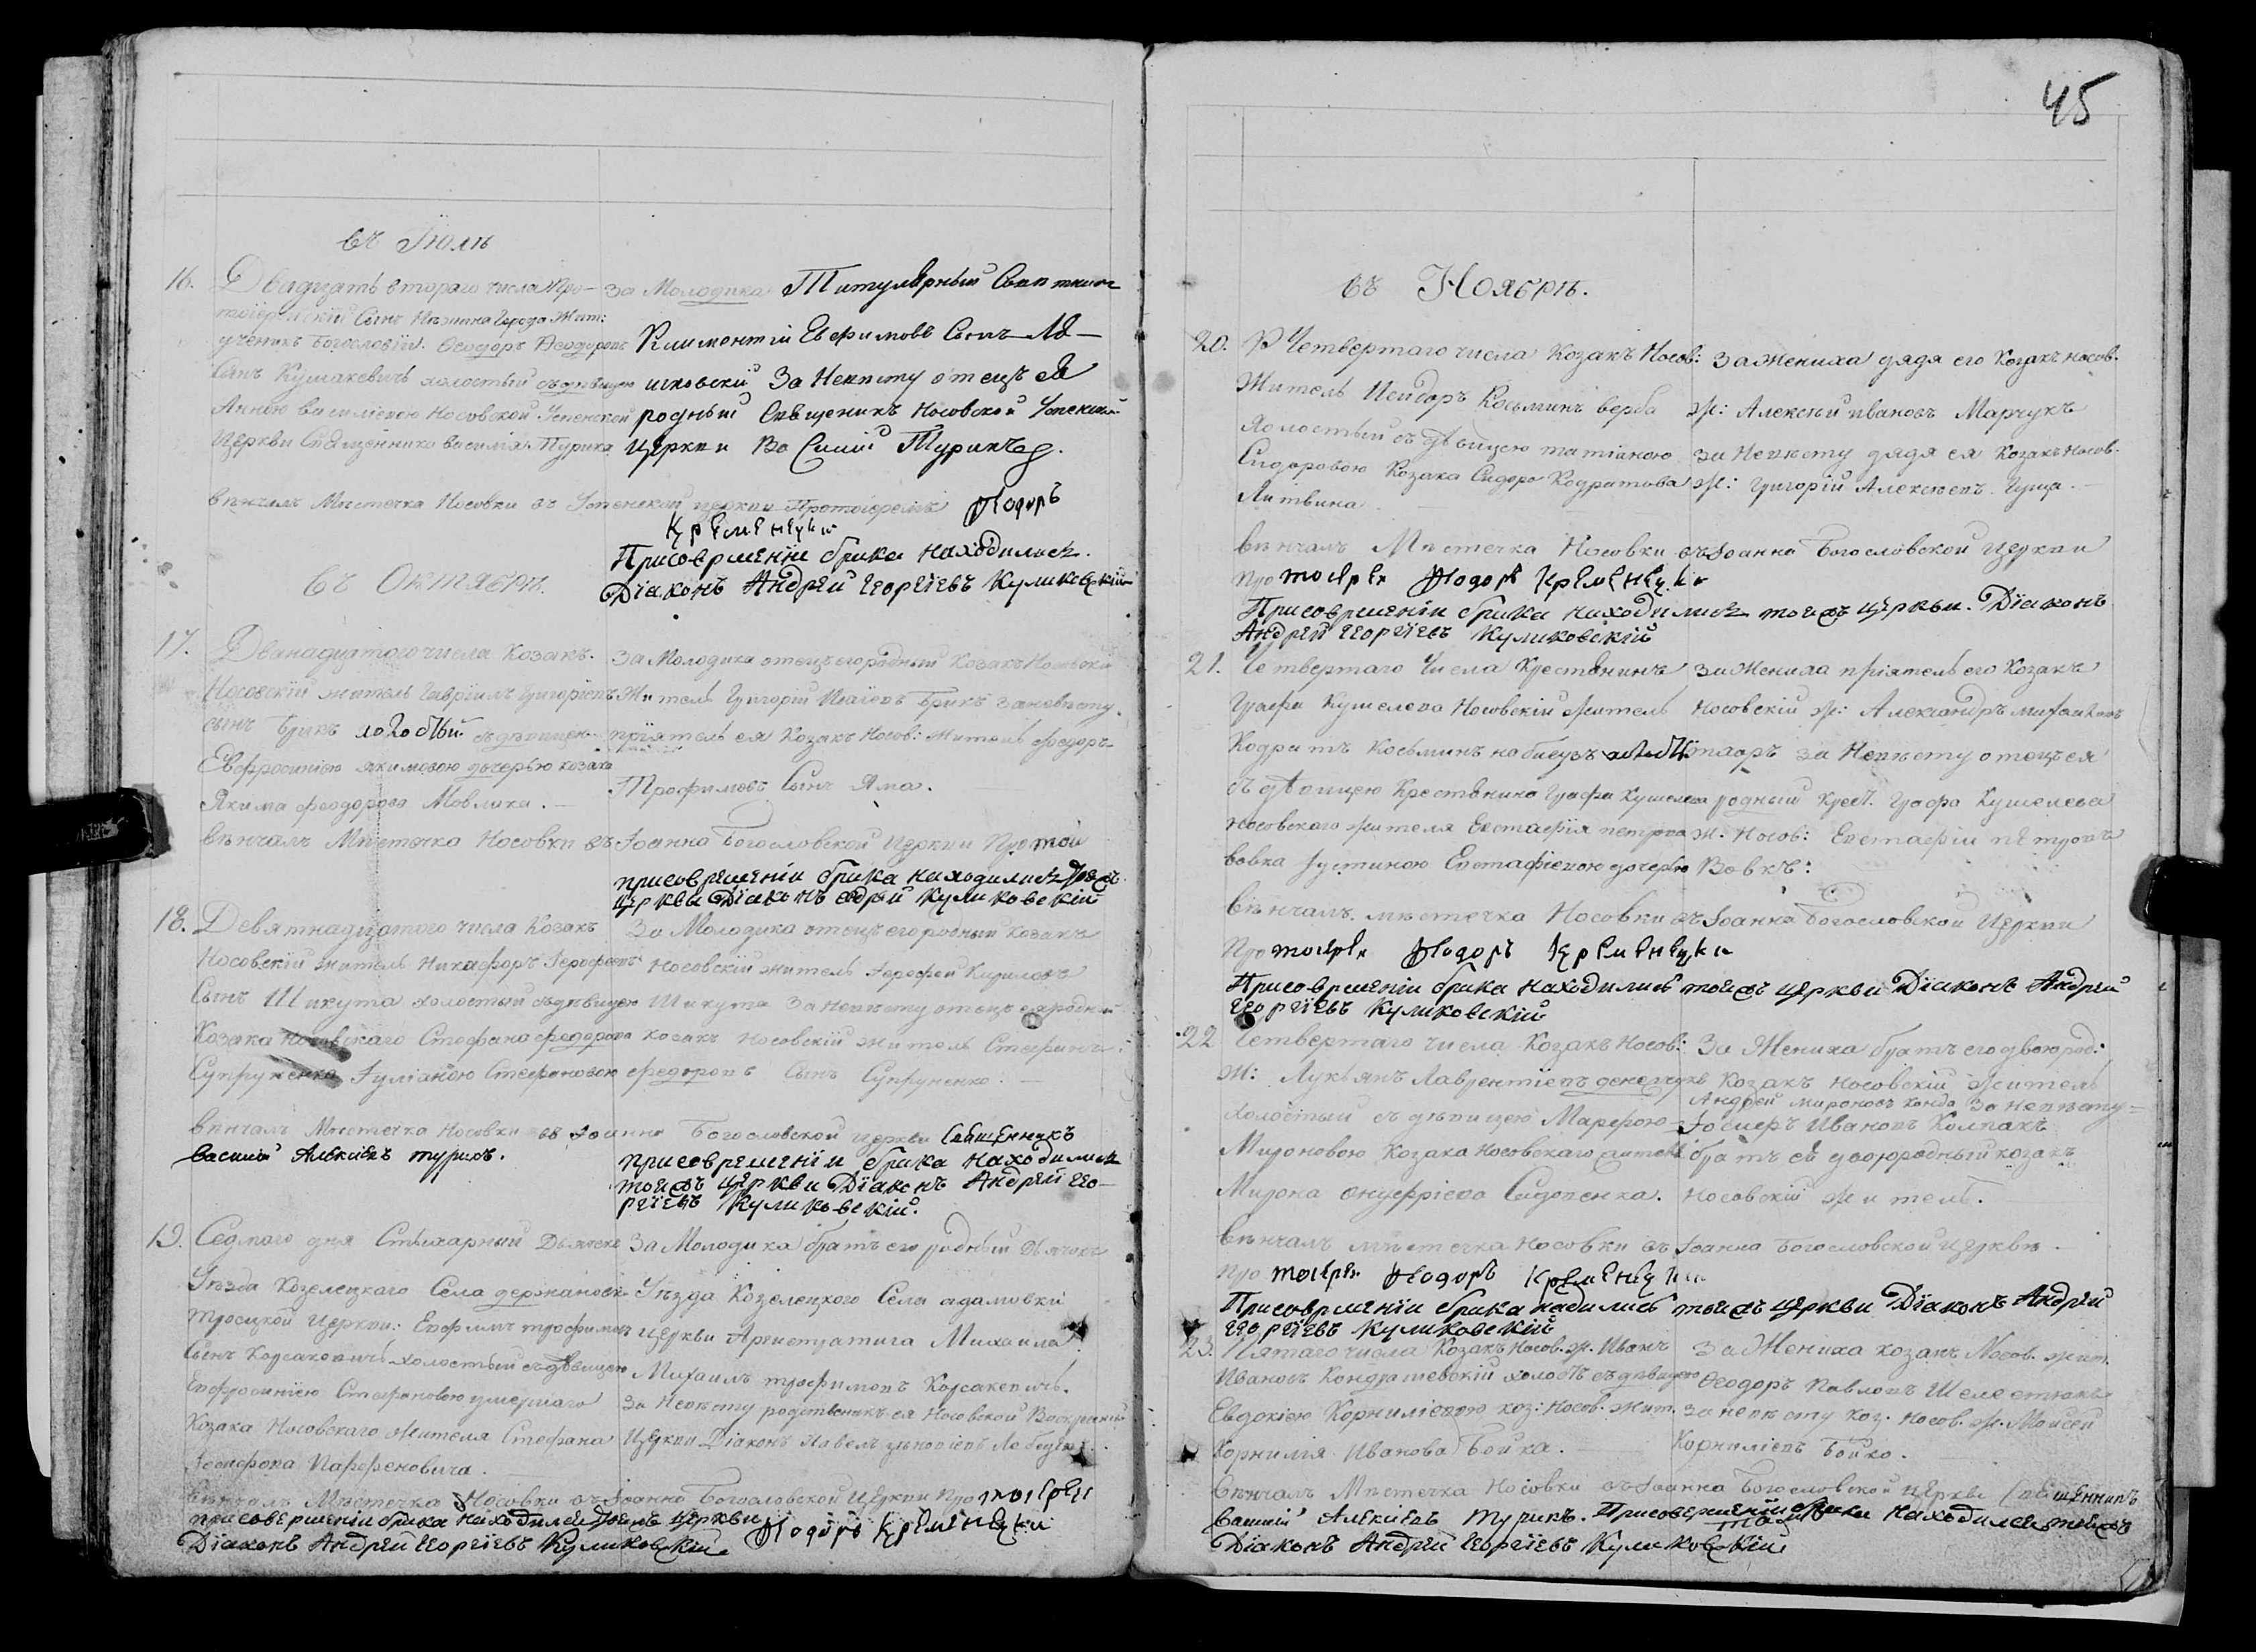 45
въ Іюлѣ
16. Двадцать втораго числа Про-
тоіерейскій Сынъ Нѣжина Города Жит:
ученикъ Богословіи. Ѳеодоръ Ѳеодоровъ
Сынъ Кушакевичь холостый съ дѣвицею
Анною Василіевою Носовской Успенской
Церкви Священника Василія Турика
За Молодика Титулярный Совѣтникъ
Климентій Евфимовъ Сынъ
За Невѣсту отецъ ея
родный Священикъ Носовской Успенской
Церкви Василій Турикъ.
вѣнчалъ Мѣстечка Носовки въ Успенской церкви Протоіерей Ѳеодоръ
Кременецкій
При совершеніи брака находились
Діаконъ Андрей Георгіевъ Куликовскій
въ Октябрѣ.
17. Дванадцатого числа Козакъ
Носовскій житель Гавріилъ Григоріевъ
сынъ Брикъ холостый съ дѣвицею
Евфросиніею Якимовою дочерью козака
Якима Феодорова Мовлика.
За Молодика отецъ его родный Козакъ Носовскій
Житель Григорій Брикъ За невѣсту
пріятель ея Козакъ Носов: Житель Феодоръ
Трофимовъ Сынъ Яма.
вѣнчалъ Мѣстечка Носовки въ Іоанно Богословской Церкви Протоі
при совершеніи брака находились тоежъ
церкви Діаконъ Андрей Куликовскій
18. Девятнадцатого числа Козакъ
Носовскій житель Никифоръ Іерофеевъ
Сынъ Шикута холостый съ дѣвицею
Козака Носовскаго Стефана Федорова
Супруненка Іуліаною Стефановою
За Молодика отецъ его родный козакъ
Носовскій житель Іерофей Кириловъ
Шикута За Невѣсту отецъ ея родный
козакъ Носовскій житель Стефанъ
Федоровъ Сынъ Супруненко.
вѣнчалъ Мѣстечка Носовки въ Іоанно Богословской церкви Священникъ
Василій Алексіевъ Турикъ.
при совершеніи брака находились
тоежъ церкви Діаконъ Андрей Гео-
ргіевъ Куликовскій.
19. Седмого дня Стихарный Дьячекъ
Уѣзда Козелецкаго Села держановки
Троецкой Церкви: Евфимъ Трофимовъ
Сынъ Корсакевичь холостый съ дѣвицею
Евфросиніею Стефановою умершаго
Козака Носовскаго Жителя Стефана
Парфеновича.
За Молодика братъ его родный Дьячекъ
Уѣзда Козелецкого Села адамовки
Церкви Архистратига Михаила
Михаилъ Трофимовъ Корсакевичь.
За Невѣсту родственикъ ея Носовской Воскресенской
Церкви Діаконъ Павелъ
вѣнчалъ Мѣстечка Носовки въ Іоанно Богословской Церкви Протоіерей
при совершеніи брака находился тоежъ церкви Ѳеодоръ Кременецкій
Діаконъ Андрей Георгіевъ Куликовскій
въ Ноябрѣ.
20. Четвертаго числа Козакъ Носов:
Житель Исидоръ Косьминъ Верба
Холостый съ дѣвицею Татіаною
Сидоровою Козака Сидора Кодратова
Литвина
За Жениха дядя его Козакъ Носов.
ж: Алексѣй Ивановъ Марчукъ
За Невѣсту дядя ея Козакъ Носов.
ж: Григорій Алексѣевъ Гуща.
вѣнчалъ Мѣстечка Носовки въ Іоанно Богословской Церкви
Протоіерей Ѳеодоръ Кременецкій
При совершеніи брака находились тоежъ церкви. Діаконъ
Андрей Георгіевъ Куликовскій
21. Четвертаго Числа Крестьянинъ
Графа Кушелева Носовскій Житель
Кодратъ Косьминъ
съ дѣвицею Крестьянина Графа Кушелева
Носовскаго жителя Евстафія Петрова
Вовка Іустиною Евстафіевою дочерью
За Жениха пріятель его Козакъ
Носовскій ж: Александръ
За Невѣсту отецъ ея
родный Крест. Графа Кушелева
ж. Носов: Евстафій Петровъ
Вовкъ:
вѣнчалъ мѣстечка Носовки въ Іоанно Богословской Церкви
Протоіерей Ѳеодоръ Кременецкій
При совершеніи брака находились тоежъ церкви Діаконъ Андрей
Георгіевъ Куликовскій
22 Четвертаго числа Козакъ Носов:
ж: Лукьянъ Лаврентіевъ
холостый съ дѣвицею Марфою
Мироновою Козака Носовскаго жителя
Мирона Онуфріева Сидоренка.
За Жениха братъ его двоюрод:
Козакъ Носовскій Житель
Андрей Мироновъ За невѣсту
Іосифъ Ивановъ Колпакъ
братъ ея двоюродный козакъ
Носовскій житель.
вѣнчалъ мѣстечка Носовки въ Іоанно Богословской Церквѣ.
Протоіерей Ѳеодоръ Кременецкій
При совершеніи брака находились тоежъ церкви Діаконъ Андрей
Георгіевъ Куликовскій
23. Пятаго числа Козакъ Носов. ж. Иванъ
Ивановъ Кондрашевскій холост съ дѣвицею
Евдокіею Корниліевою коз: Носов. жит.
Корнилія Иванова Бойка.
За Жениха козакъ Носов. жит.
Ѳеодоръ Павловъ
За невѣсту коз. Носов. ж. Моисей
Корниліевъ Бойко.
вѣнчалъ Мѣстечка Носовки въ Іоанно Богословской церкви Священникъ
Василій Алексіевъ Турикъ. При совершеніи брака находился тоежъ
Діаконъ Андрей Георгіевъ Куликовскій